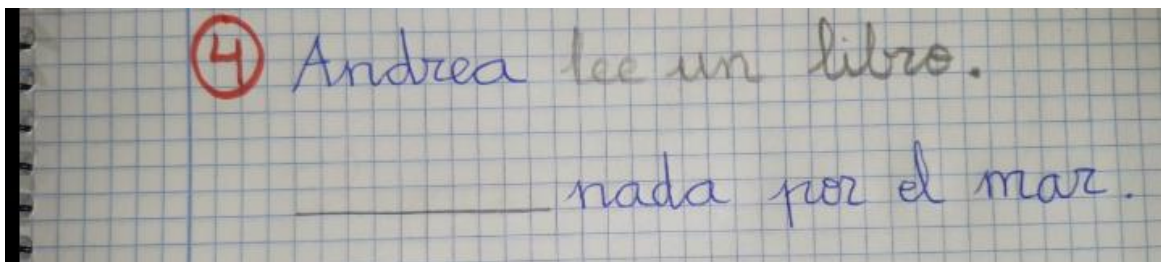 4 Andrea lee un libro.
________ nada por el mar.